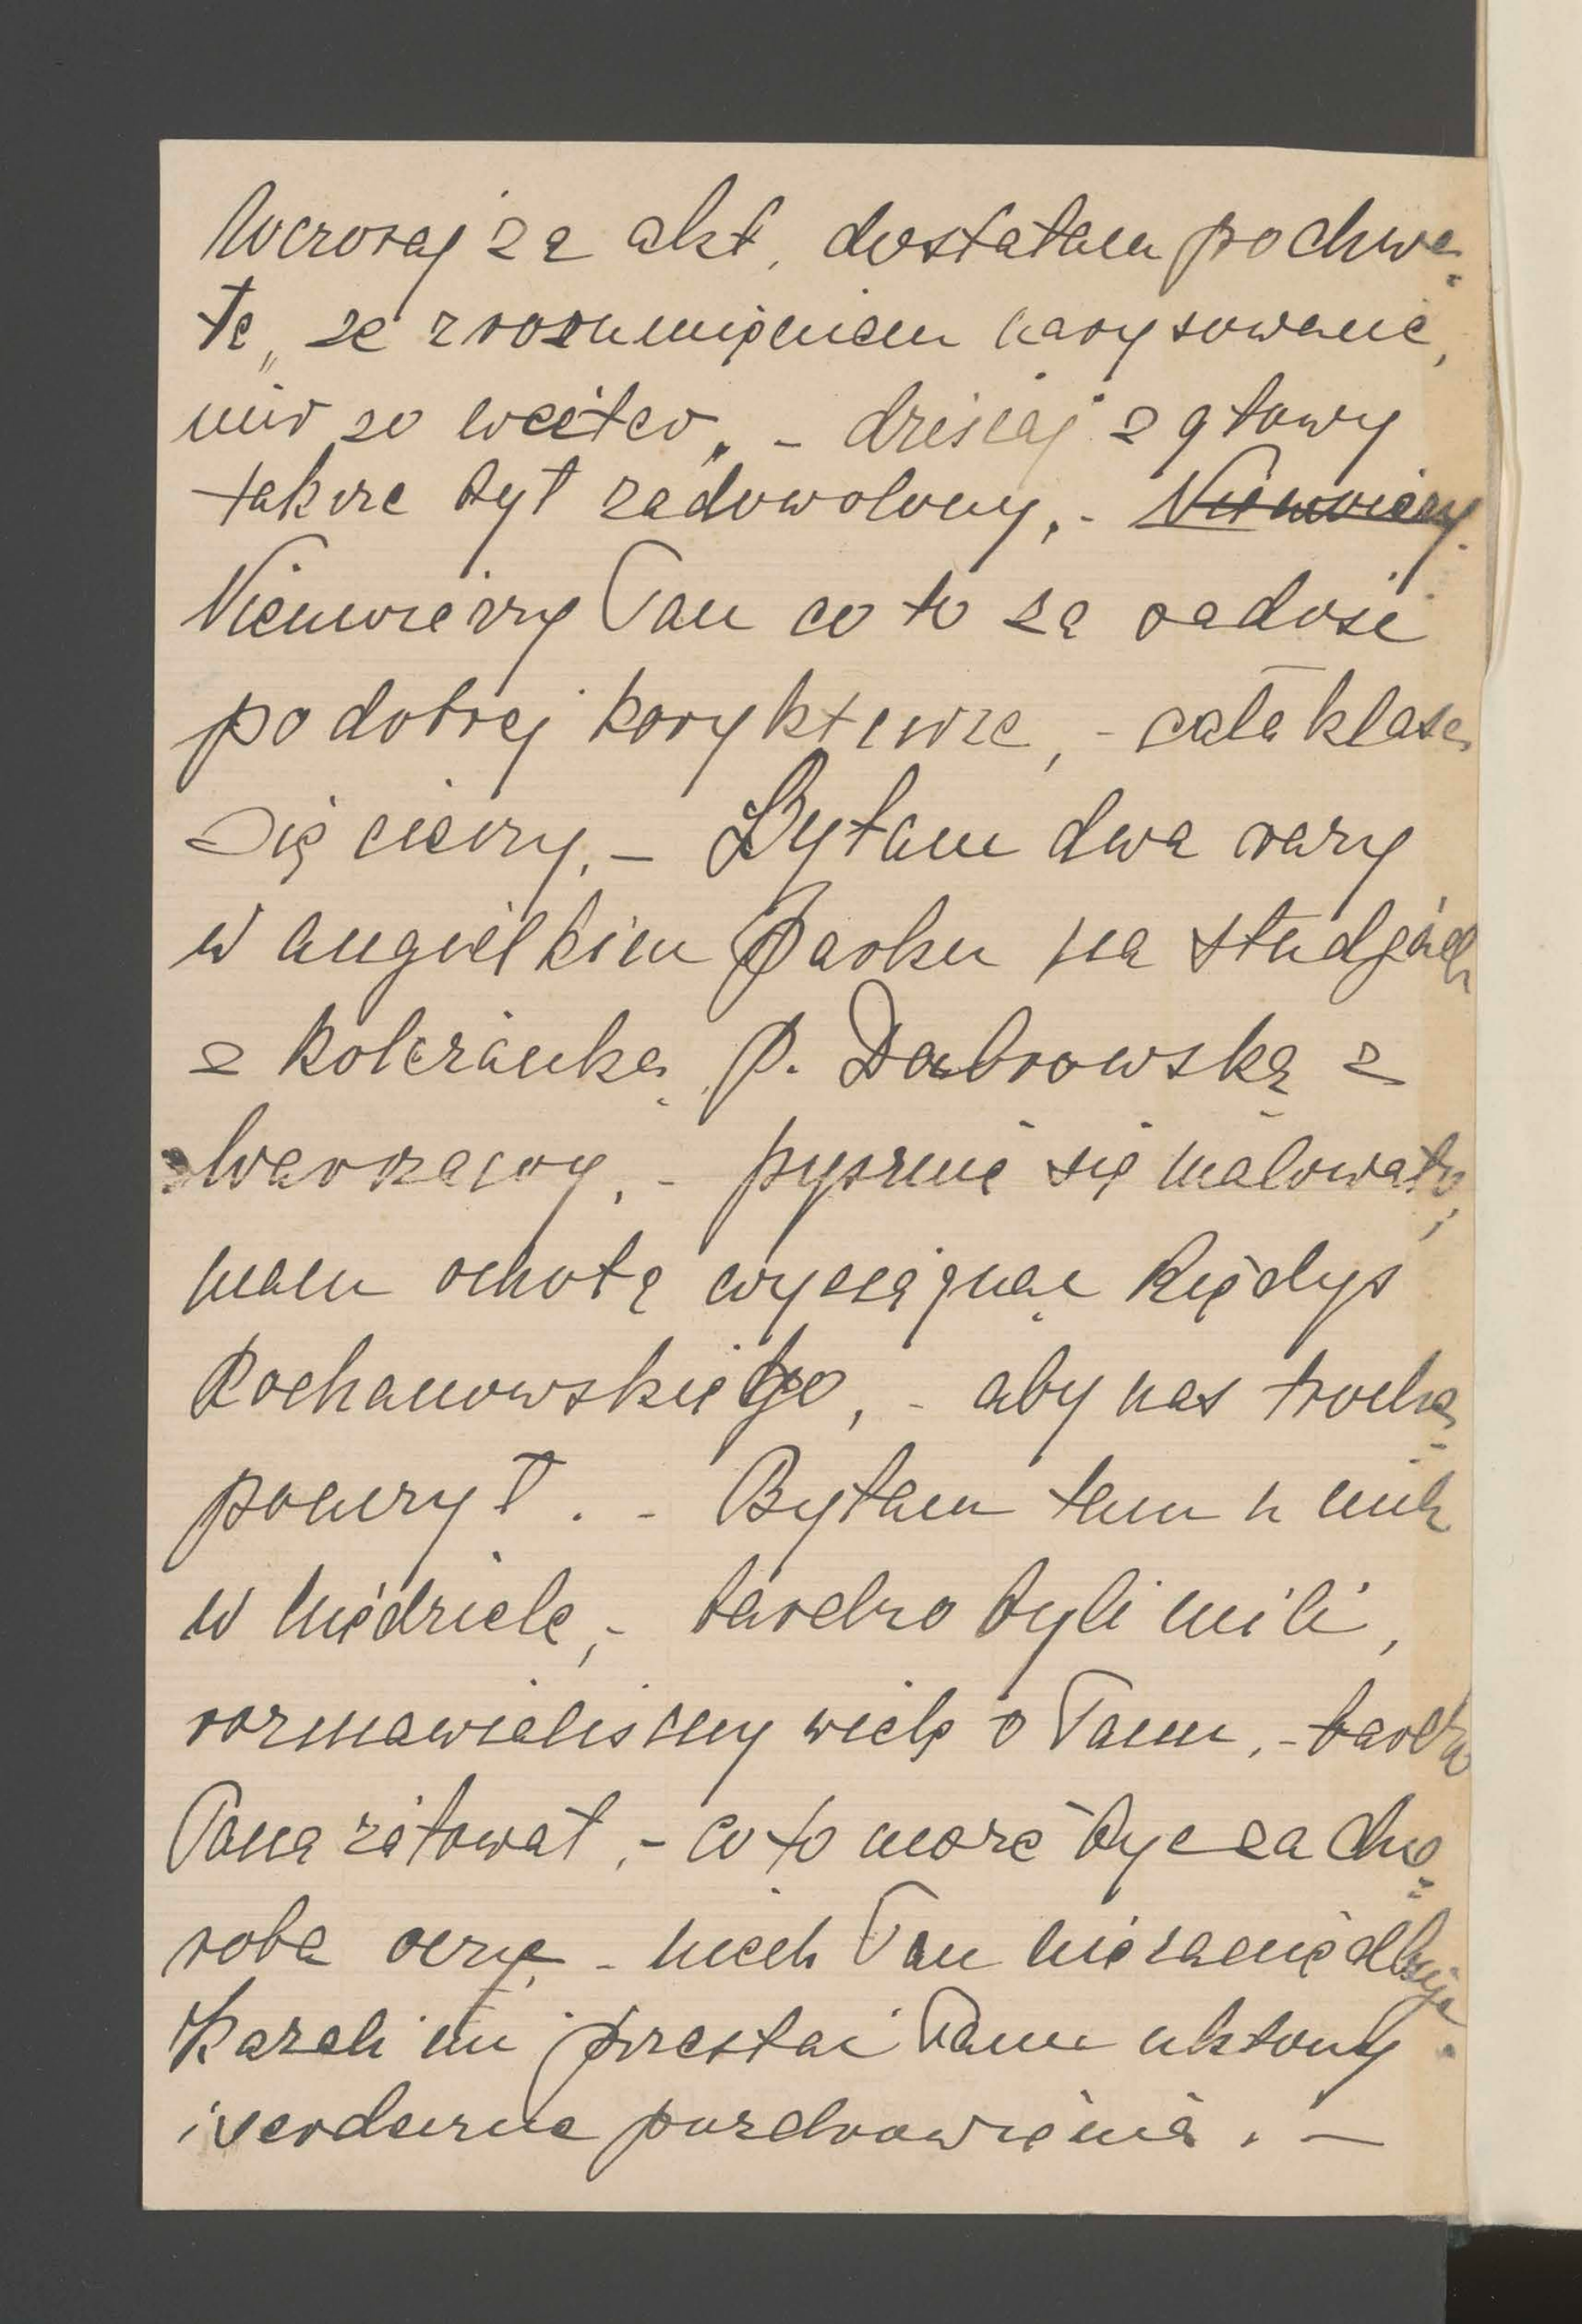 Wczoraj za akt, dostałam pochwa-
łę „ze zrozumieniem narysowane,
nur so weiter„ - dzisiaj z głowy
także był zadowolony. - Niewierzy
Niewierzy Pan co to za radość
po dobrej korykturze, - cała klasa
się cieszy. - Byłam dwa razy
w angielskim Parku na studjach
z koleżanką p. Dąbrowską z
Warszawy. - pysznie się malowało,
mam ochotę wyciągnąć kiedyś
Kochanowskiego, - aby nas trochę
pouczył. - Byłam tam u nich
w niedzielę, - bardzo byli mili,
rozmawialiśmy wiele o Panu. - bardzo
Pana żałował. - co to może być za cho-
roba oczy. - niech Pan nie zaniedbuje.
Kazali mi przesłać Panu ukłony
i serdeczne pozdrowienia. -